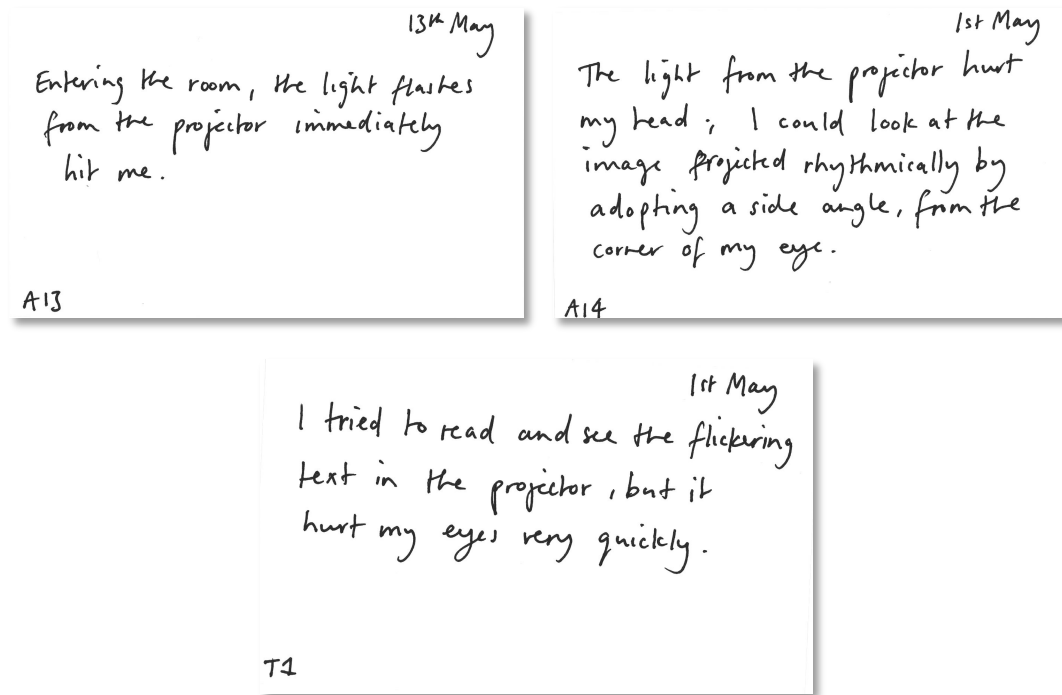 13th May
Entering the room, the light flashes
from the projector immediately
hit me.
A13
1st May
The light from the projector hurt
my head; I could look at the
image projected rhythmically by
adopting a side angle, from the
corner of my eye.
A14
1st May
I tried to read and see the flickering
text in the projector, but it
hurt my eyes very quickly.
T1